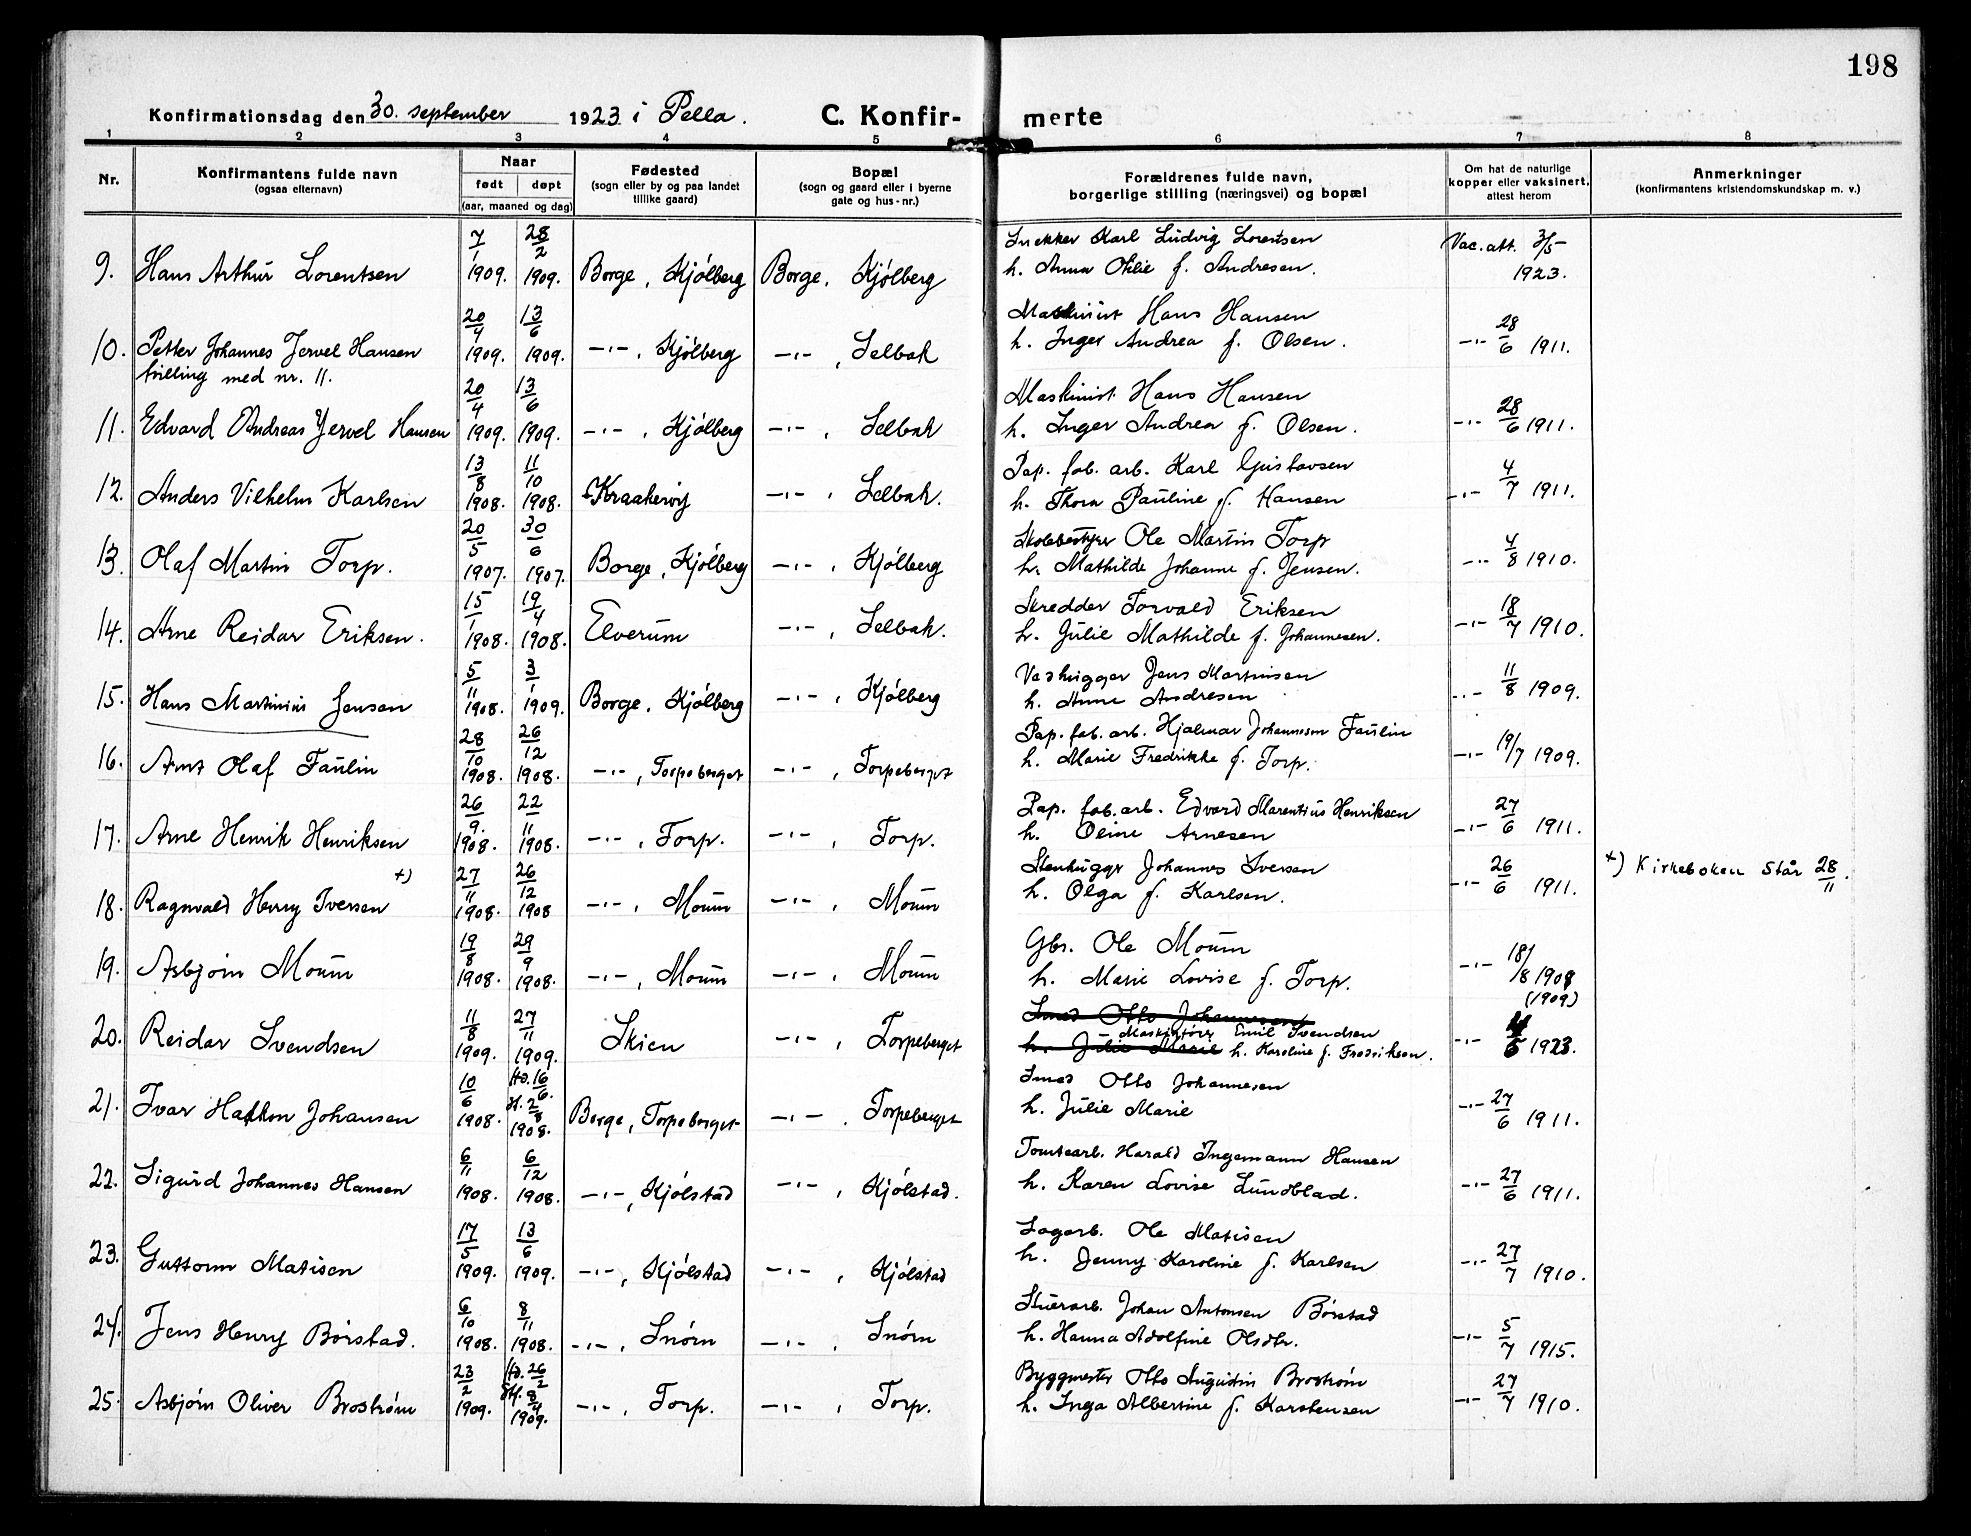 198
Konfirmationsdag den 30. september 1923 i Pella. C. Konfir- merte
1 2 3 4 5 6 7 8
Nr. Konfirmantens fulde navn (ogsaa efternavn) Naar født døpt (aar, maaned og dag) Fødested (sogn eller by og paa landet tillike gaard) Bopæl (sogn og gaard eller i byerne gate og hus-nr.) Forældrenes fulde navn, borgerlige stilling (næringsvei) og bopæl Om hat de naturlige kopper eller vaksinert, attest herom Anmerkninger (konfirmantens kristendomskundskap m. v.)
9. Hans Arthur Lorentsen 7/1 1909. 28/2 1909. Borge, Kjølberg Borge, Kjølberg Snekker Karl Ludvig Lorentsen h. Anna Otilie f. Andresen. Vac. att. 3/5 1923.
10. Petter Johannes Jervel Hansen tvilling med nr. 11. 20/4 1909. 13/6 1909. -"-, Kjølberg -"-, Selbak Maskinist Hans Hansen h. Inger Andrea f. Olsen. -"- 28/6 1911.
11. Edvard Andreas Jervel Hansen 20/4 1909. 13/6 1909. -"-, Kjølberg -"-, Selbak Maskinist Hans Hansen h. Inger Andrea f. Olsen. -"- 28/6 1911.
12. Anders Vilhelm Karlsen 13/8 1908. 11/10 1908. Kraakerøy -"-, Selbak. Pap. fab. arb. Karl Gustavsen h. Thora Pauline f. Hansen -"- 4/7 1911.
13. Olaf Martin Torp. 20/5 1907. 30/6 1907. Borge, Kjølberg -"-, Kjølberg Skolebestyrer Ole Martin Torp h. Mathilde Johanne f. Jensen. -"- 4/8 1910.
14. Arne Reidar Eriksen. 15/1 1908. 19/4 1908. Elverum -"-, Selbak. Skredder Torvald Eriksen h. Julie Mathilde f. Johannesen. -"- 18/7 1910.
15. Hans Martinius Jensen 5/11 1908. 3/1 1909. Borge, Kjølberg -"-, Kjølberg Vedhugger Jens Martinsen h. Anne Andresen -"- 11/8 1909.
16. Arnt Olaf Faulin 28/10 1908. 26/12 1908. -"-, Torpeberget -"-, Torpeberget Pap. fab. arb. Hjalmar Johannesen Faulin h. Marie Fredrikke f. Torp. -"- 19/7 1909.
17. Arne Henrik Henriksen 26/9. 1908. 22/11 1908. -"-, Torp. -"-, Torp. Pap. fab. arb. Edvard Marentius Henriksen h. Oline Arnesen -"- 27/6 1911.
18. Ragnvald Henry Iversen +) 27/11 1908. 26/12 1908 -"-, Moum -"-, Moum Stenhugger Johannes Iversen h. Olga f. Karlsen. -"- 26/6 1911. +) Kirkeboken står 28/11.
19. Asbjørn Moum 19/8 1908. 29/9 1908. -"-, Moum -"-, Moum Gbr. Ole Moum h. Marie Lovise f. Torp. -"- 18/8 1908 (1909)
20. Reidar Svendsen 11/8 1909. 27/11 1909. Skien -"-, Torpeberget Smed Otto Johannesen h. Julie Marie Maskinfører Emil Svendsen h. Karoline f. Fredriksen. -"- 5 1923.
21. Ivar Hakon Johansen 10/6 1908. Hd. 16/6. St. 2/8 1908. Borge, Torpeberget -"-. Torpeberget Smed Otto Johannesen h. Julie Marie -"- 27/6 1911.
22. Sigurd Johannes Hansen 6/11 1908. 6/12 1908. -"-, Kjølstad -"-, Kjølstad. Tomtearb. Harald Ingemann Hansen h. Karen Lovise Lundblad. -"- 27/6 1911.
23. Guttorm Matisen 17/5 1909. 13/6 1909. -"-, Kjølstad -"-, Kjølstad Sagarb. Ole Matisen h. Jenny Karoline f. Karlsen -"- 27/7 1910.
24. Jens Henry Børstad. 6/10 1908. 8/11 1908. -"-, Snørn -"-. Snørn Stuerarb. Johan Antonsen Børstad h. Hanna Adolfine Olsdtr. -"- 5/7 1915.
25. Asbjørn Oliver Brostrøm 23/2 1909. Hd. 26/2 Stf. 8/4 1909. -"-, Torp. -"-, Torp. Byggmester Otto Augustin Brostrøm h. Inga Albertine f. Karstensen -"- 27/7 1910.